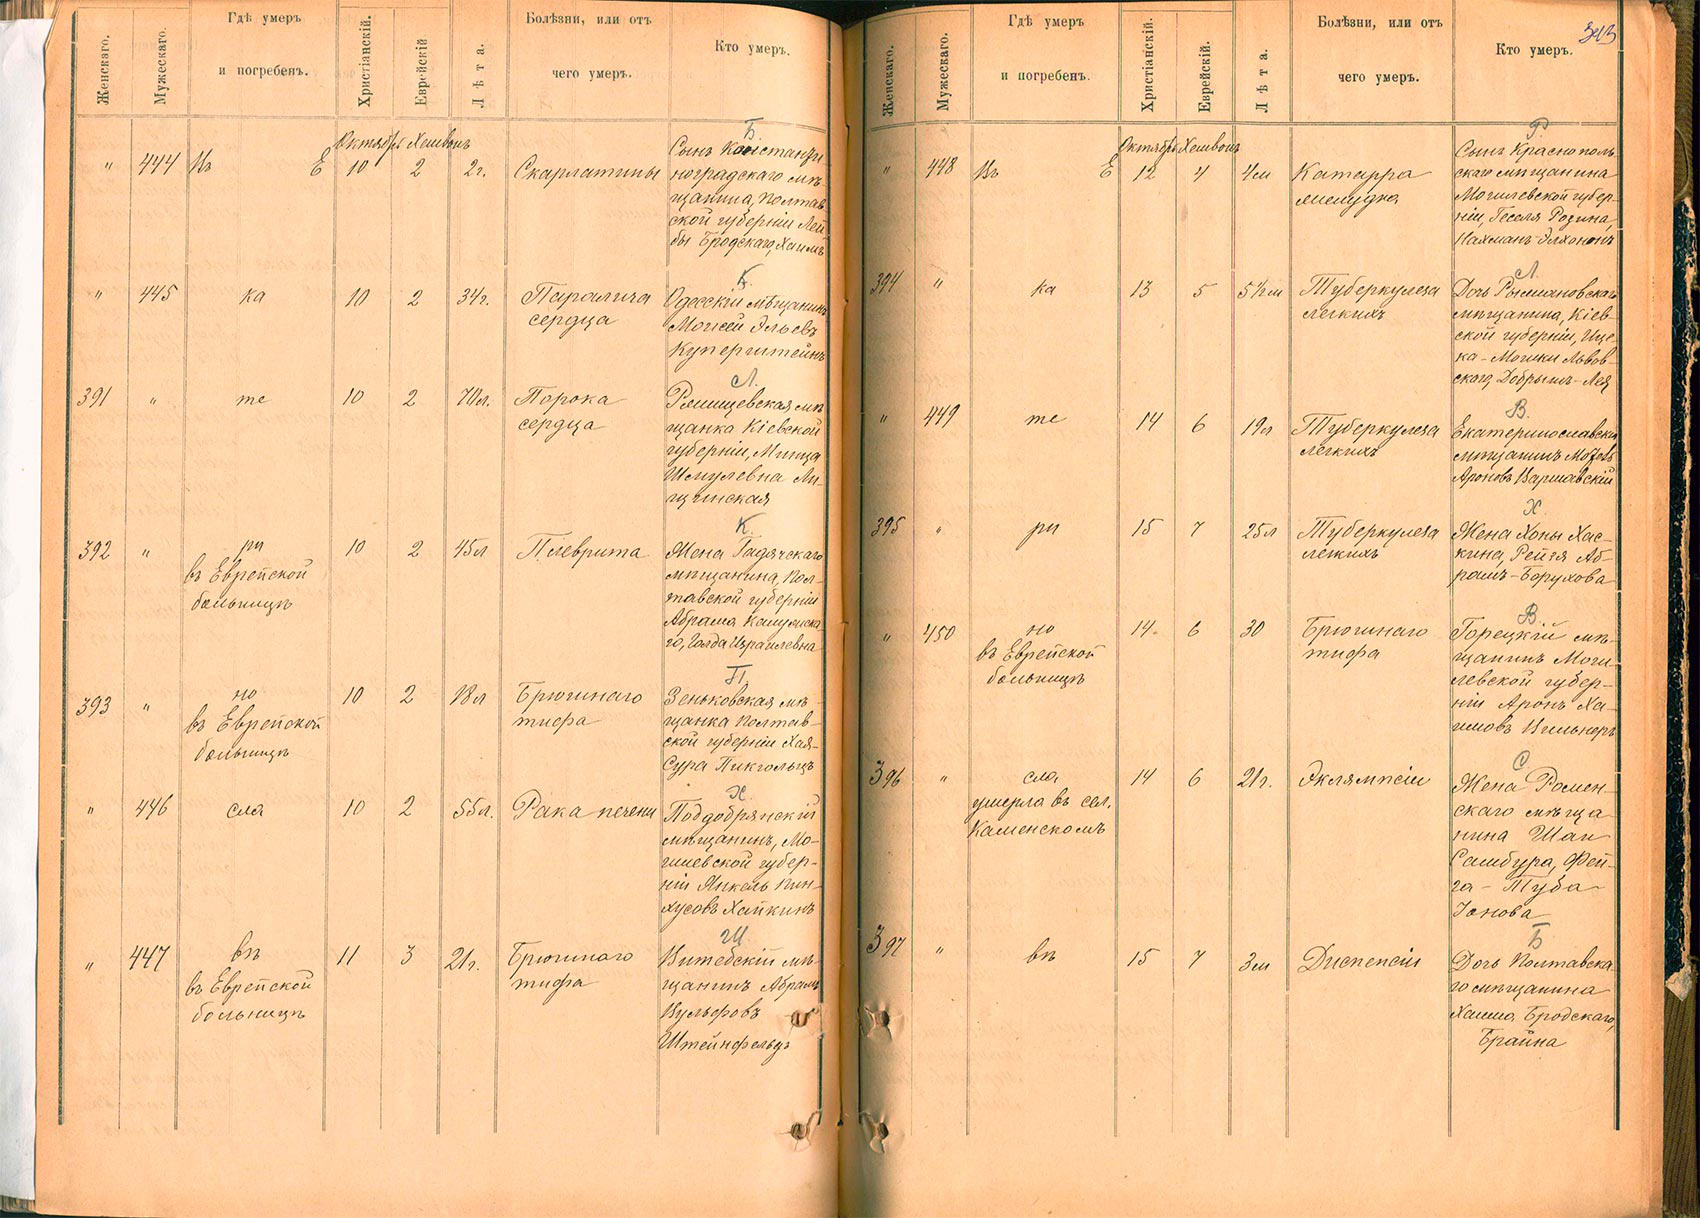 Женскаго.
Мужескаго.
Гдѣ умеръ
и погребенъ.
Христіанскій.
Еврейскій
Лѣта.
Болѣзни, или отъ
чего умеръ.
Кто умеръ.
Октябрь Хешвонъ
Б.
" 444 Въ Е 10 2 2г. Скарлатины
Сынъ Константи
ноградскаго мѣ-
щанина, Полтав
ской губерніи Лей
бы Бродскаго, Хаимъ
К.
" 445 ка 10 2 34г. Паралича
сердца
Одесскій мѣщанинъ
Моисей Эльевъ
Куперштейнъ
Л.
391 " те 10 2 70л. Порока
сердца
мѣ
щанка Кіевской
губерніи,
Шмулевна Ли-
щинская
К.
392 " ри 10 2 45л Плеврита
въ Еврейской
больницѣ
Жена Гадячскаго
мѣщанина, Пол-
тавской губерніи
Абрама
го, Голда Израилевна
П.
393 " но 10 2 18л Брюшнаго
тифа
въ Еврейской
больницѣ
Зеньковская мѣ-
щанка Полтав-
ской губерніи Хая-
Сура Пикгольцъ
Х.
" 446 сла 10 2 55л. Рака печени
Поддобрянскій
мѣщанинъ, Мо-
гилевской губер-
ніи Янкель Пин-
хусовъ Хайкинъ
Ш.
" 447 въ 11 3 21г. Брюшнаго
тифа
въ Еврейской
больницѣ
Витебскій мѣ-
щанинъ Абрамъ
Вульфовъ
Штейнфельдъ
343
Женскаго.
Мужескаго.
Гдѣ умеръ
и погребенъ.
Христіанскій.
Еврейскій.
Лѣта.
Болѣзни, или отъ
чего умеръ.
Кто умеръ.
Октябрь Хешвонъ
Р.
" 448 Въ Е 12 4 4м Катарра
желудка
Сынъ Краснополь
скаго мѣщанина
Могилевской губер-
ніи, Геселя Розина,
Нахманъ-Элхононъ
Л.
394 " ка 13 5 5½м Туберкулеза
легкихъ
Дочь
мѣщанина, Кіев-
ской губерніи, Ице-
ка-Мошки Львов
скаго, Добрышъ-Лея
В.
" 449 те 14 6 19л Туберкулеза
легкихъ
Екатеринославскій
мѣщанинъ
Ароновъ Варшавскій
Х.
395 " ри 15 7 25л Туберкулеза
легкихъ
Жена Хоны Хас-
кина, Рейзя Аб-
рамъ-Борухова
В.
" 450 но 14 6 30 Брюшнаго
тифа
въ Еврейской
больницѣ
Горецкій мѣ-
щанинъ Моги-
левской губер-
ніи Аронъ Ха-
имовъ Вильнеръ
С.
396 " сла 14 6 21г. Эклямпсіи
умерла въ сел.
Каменскомъ
Жена Ромен-
скаго мѣща
нина Шаи
Самбура, Фей-
га-Туба
Іонова
Б.
397 " въ 15 7 3м Диспепсіи
Дочь Полтавска
го мѣщанина
Хаима Бродскаго,
Брайна